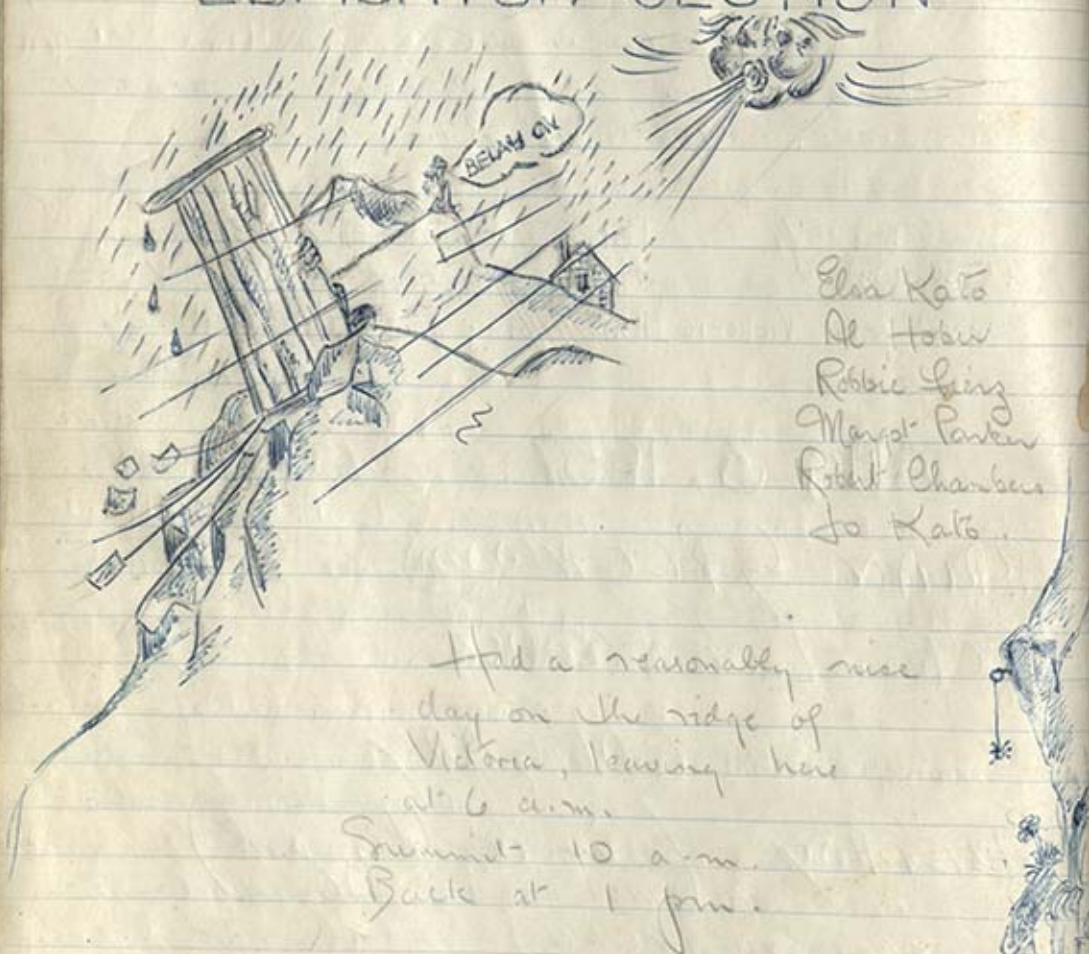 EDMONTON SECTION
BELAY ON
Elsa Kato
Al
Robbie
Margot Parker
Robert Chambers
Jo Kato.
Had a reasonably nice
day on the ridge of
Victoria, leaving here
at 6 a.m.
Summit 10 a.m.
Back at 1 pm.